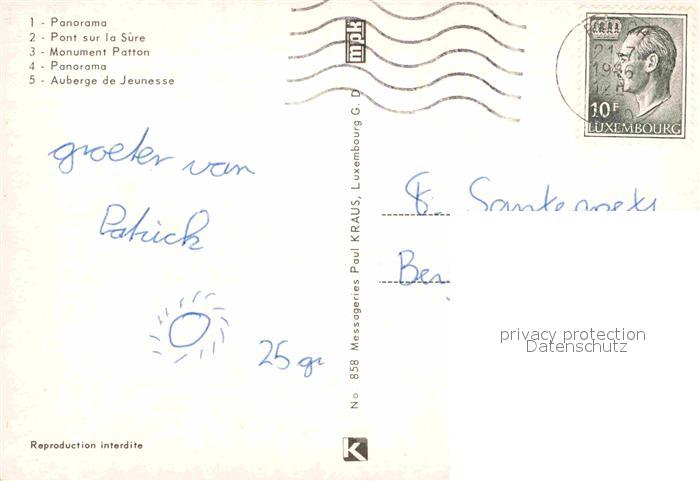 1 - Panorama
2 - Pont sur la Sûre
3 - Monument Patton
4 - Panorama
5 - Auberge de Jeunesse
groeten van
Patrick
25 gr
Reproduction interdite
No 858 Messageries Paul KRAUS, Luxembourg G. D.
mpk
K
21-7
10F
LUXEMBOURG
privacy protection
Datenschutz